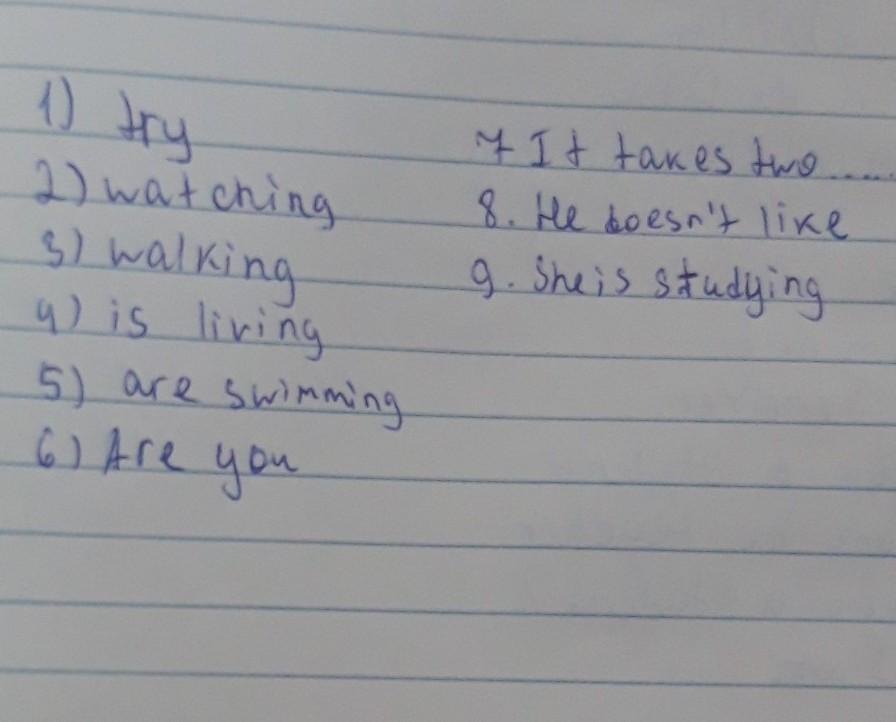 1) try
2) watching
3) walking
4) is living
5) are swimming
6) Are you
7 It takes two.....
8. He doesn't like
9. She is studying